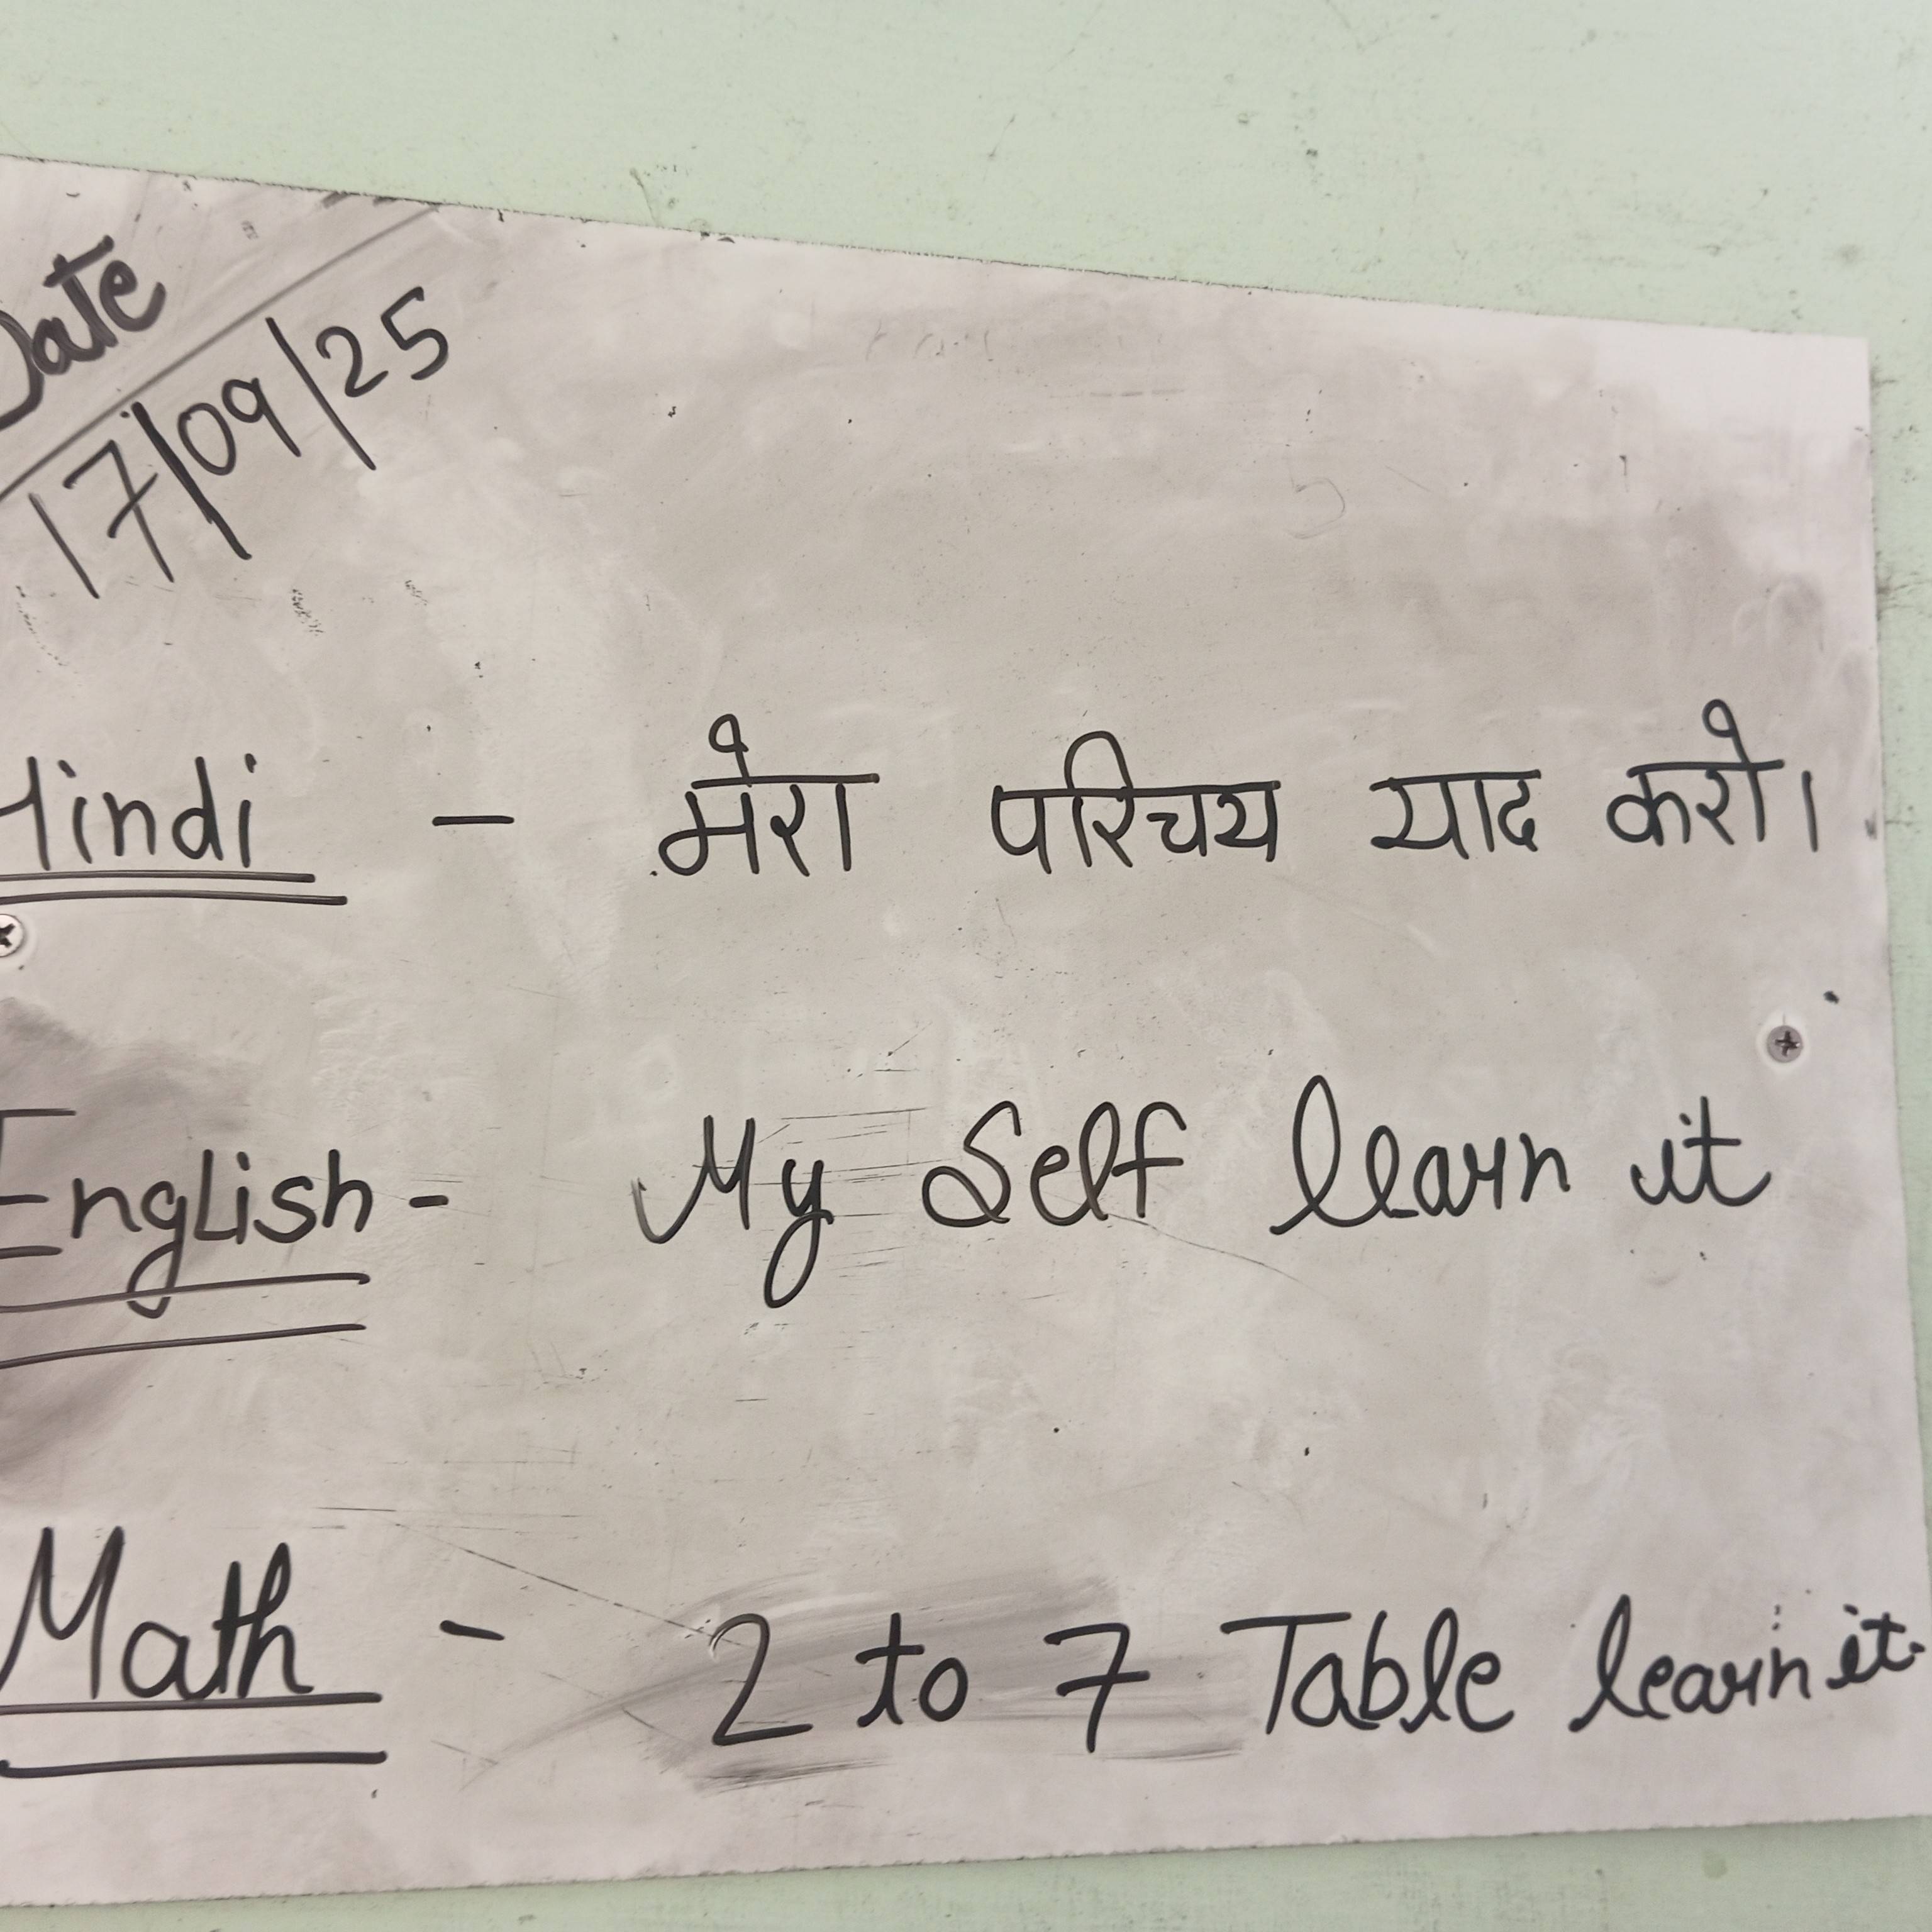 Date
17/09/25
Hindi - मेरा परिचय याद करो।
English - My Self learn it
Math - 2 to 7 Table learn it.